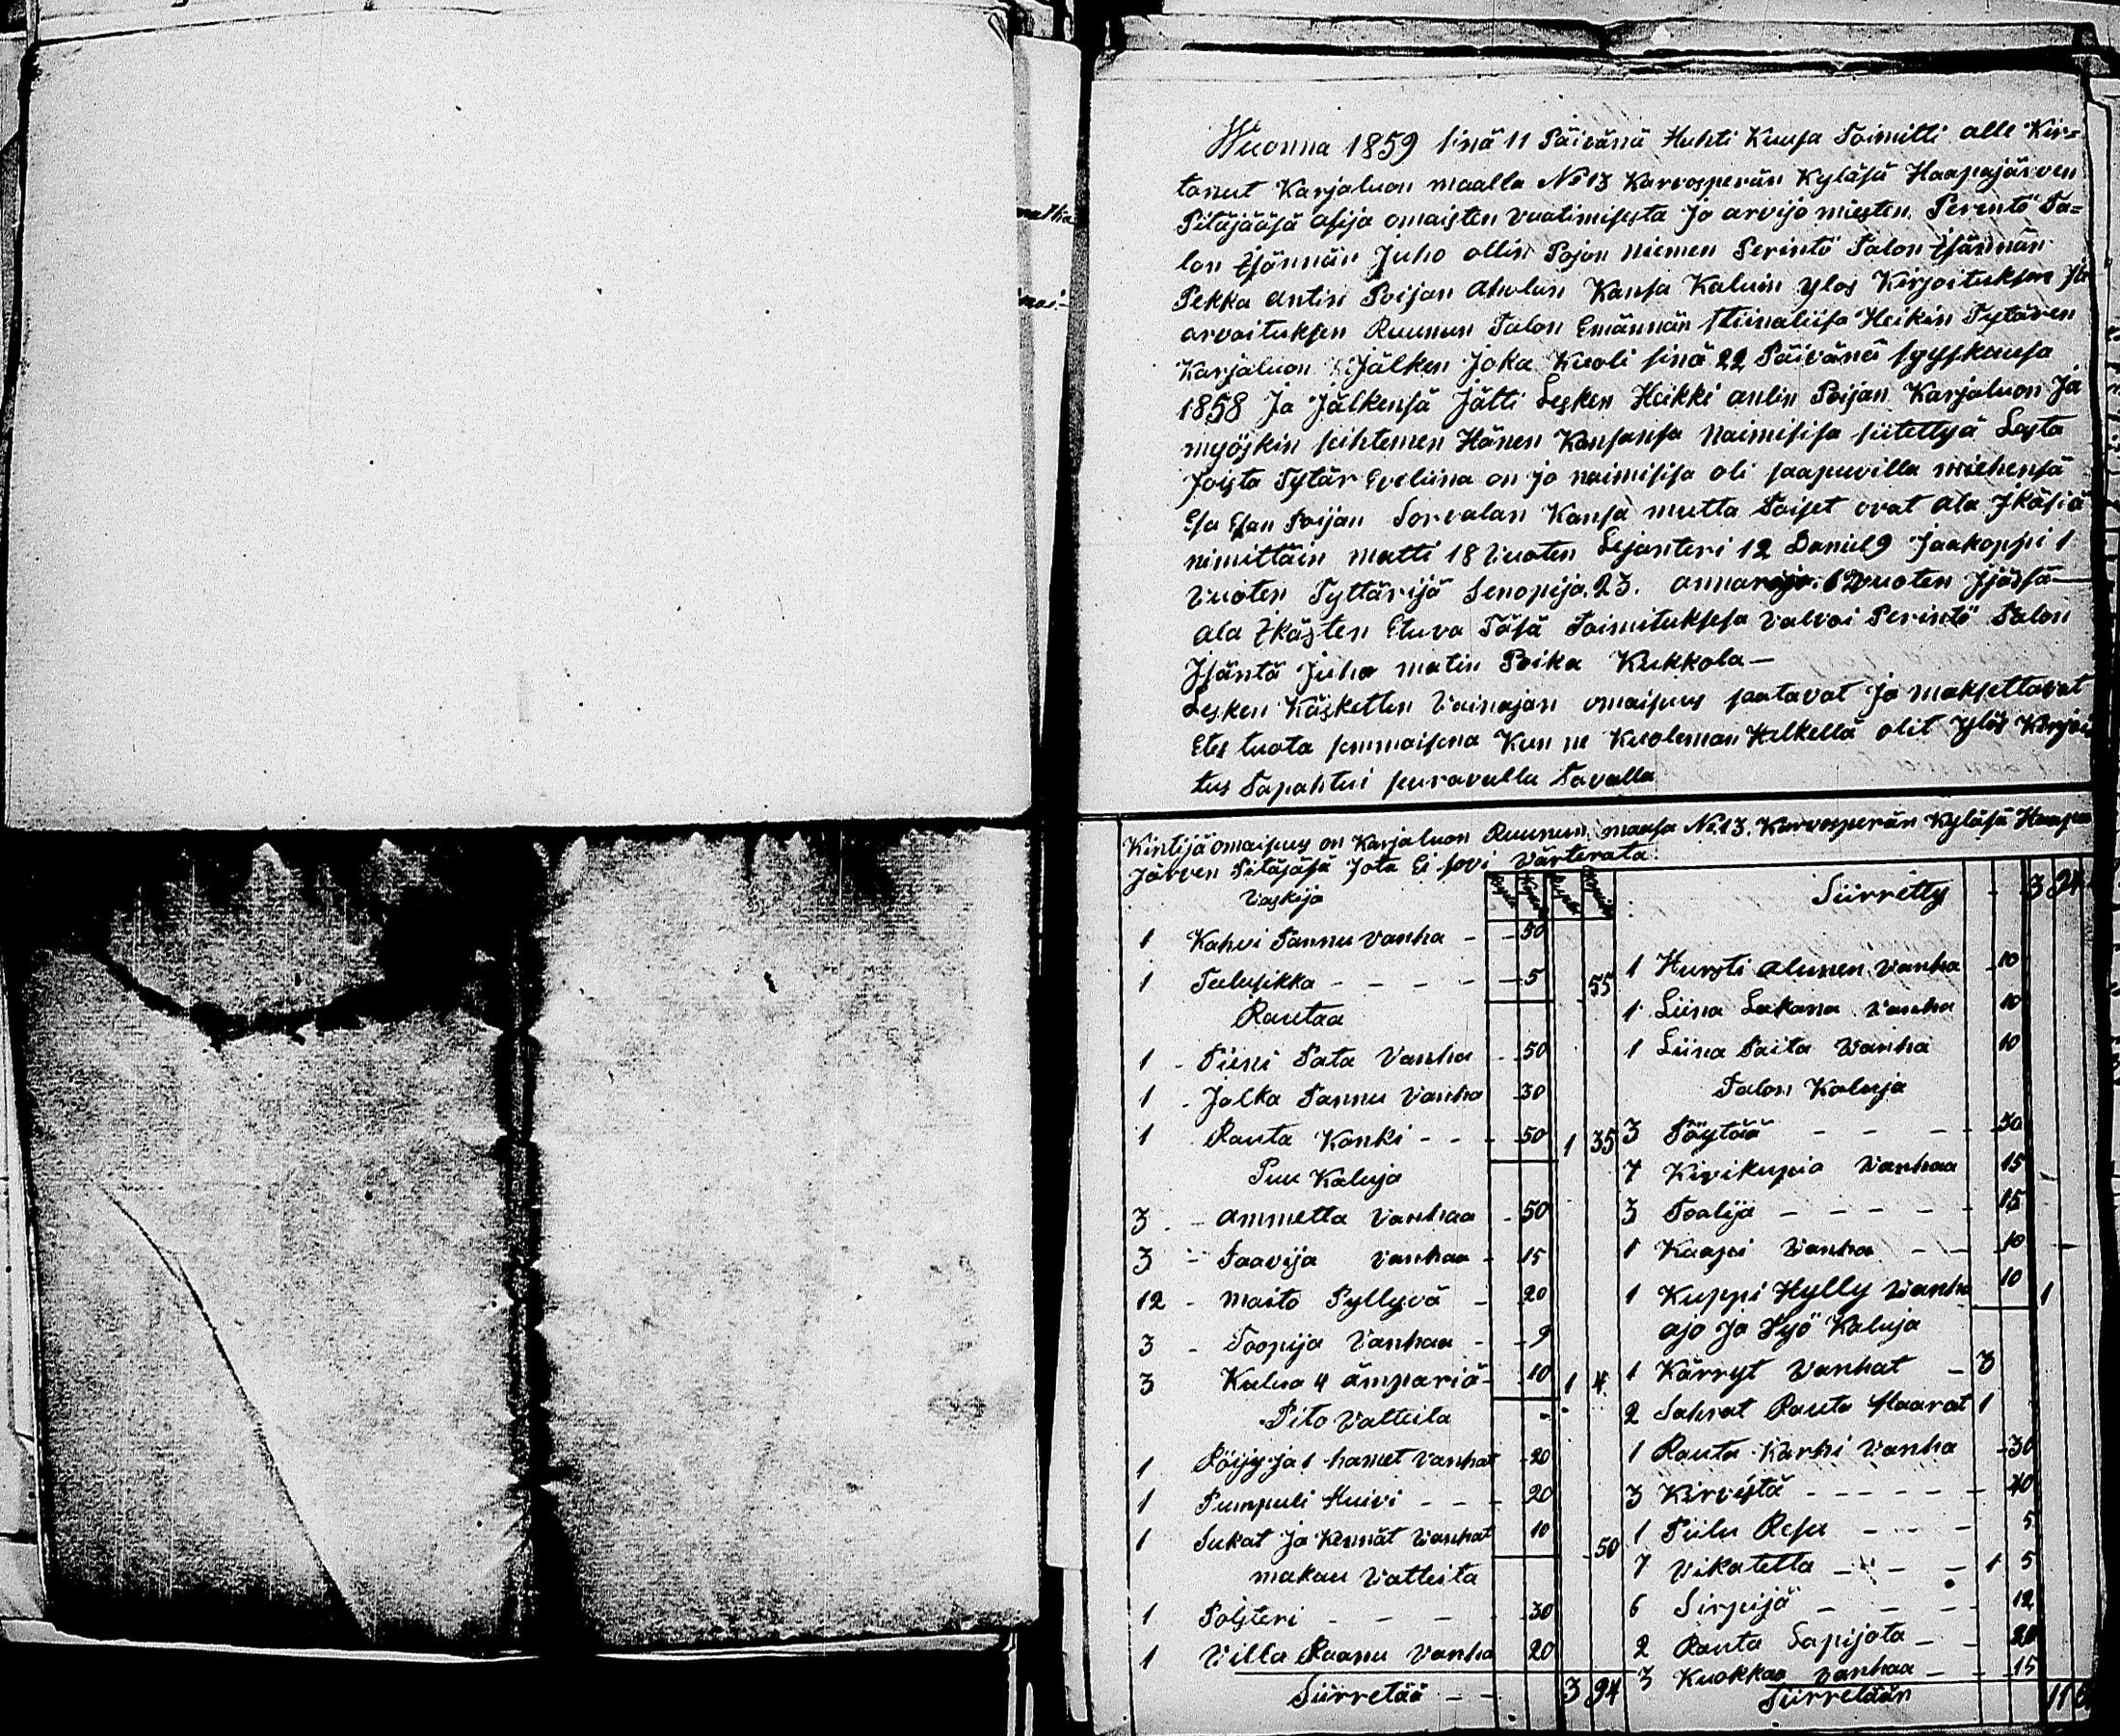 Wuonna 1859 sinä 11 Päivänä Huhti Kuusa Toimitti alle Kir=
tanut Karjaluon maalla No 13 Karvosperän Kyläsä Haapajärven
Pitäjääsä asija omaisten vaatimisesta Ja arvijo miesten Perintö Ta=
lon Isännän Juho ollin Pojan Niemen Perintö Talon Isännän
Pekka antin Poijan Aholan Kansa Kaluin ylos Kirjoituksen ja
arvoituksen Ruunun Talon Emännän Stiinaliisa Heikin Tytären
Karjaluon Jälken Joka Kuoli sinä 22 Päivänä syyskuusa
1858 Ja Jälkensä Jätti Lesken Heikki antin Poijan Karjaluon Ja
myöskin seihtemen Hänen Kansansa Naimisisa siitettyä Lasta
Joista Tytär Eveliina on jo naimisisa oli saapuvilla miehensä
Esa Esan Poijan Sorvalan Kansa mutta Toiset ovat ala Ikäsiä
nimittäin matti 18 Vuoten Lejanteri 12 Daniel 9 Jaakoppi 1
Vuoten Tyttärijä Senopija 23. 6 Vuoten Ijäsä
ala Ikästen Etuva Täsä Toimituksesa valvoi Perintö Talon
Isäntä Juho matin Poika Kukkola —
Lesken Käskettin Vainajan omaisuus saatavat Ja maksettavat
Etes tuota semmaisena Kun ne Kuoleman Hetkellä olit Ylös Kirjoi
tus Tapahtui seuravalla Tavalla
Kintijä omaisuus on Karjaluon Ruunun maasa No 13. Karvosperän Kyläsä Haapa
Järven Pitäjäsä Jota Ei sovi Värterata
Vaskija
1 Kahvi Pannu vanha - - 50
1 Tulusikka - - - - 5 55
Rautaa
1 - Piini Pata Vanha - 50
1 - Jalka Pannu Vanha 30
1 Rauta Kanki - - - 50 1 35
Puu Kaluja
3 - ammetta Vanhaa - 50
3 - Saavija vanhaa - 15
12 - maito Pyllyvä - 20
3 - Toopija Vanhaa - 9
3 Kulua 4 ämpäriä - 10 1 4
Pito Vatteita
1 Röijy ja 1 hamet Vanhat 20
1 Pumpuli Huivi - - - 20
1 Sukat Ja Kennät Vanhat 10 50
makau Vatteita
1 Polsteri - - - - 30
1 Villa Raanu Vanha 20
Siirretää - - 3 94
Siirretty - 3 94
1 Hursti alunen Vanha 10
1 Liina Lakana Vanha 10
1 Liina Paita Vanha 10
Talon Kaluja
3 Pöytää - - - - 30
7 Kivikupia Vanhaa 15
3 Toalija - - - - - 15
1 Kaapi Vanha - - 10
1 Kuppi Hylly Vanha 10 1
ajo Ja Työ Kaluja
1 Kärryt Vanhat - 3
2 Sahrat Rauta Haarat 1
1 Rauta Karhi Vanha 30
3 Kirvestä - - - - - - 40
1 Piilu - - - 5
7 Vikatetta - - - - 1 5
6 Sirpijä - - - - 12
2 Rauta Lapijota - - 20
3 Kuokkaa Vanhaa - - 15
Siirretään